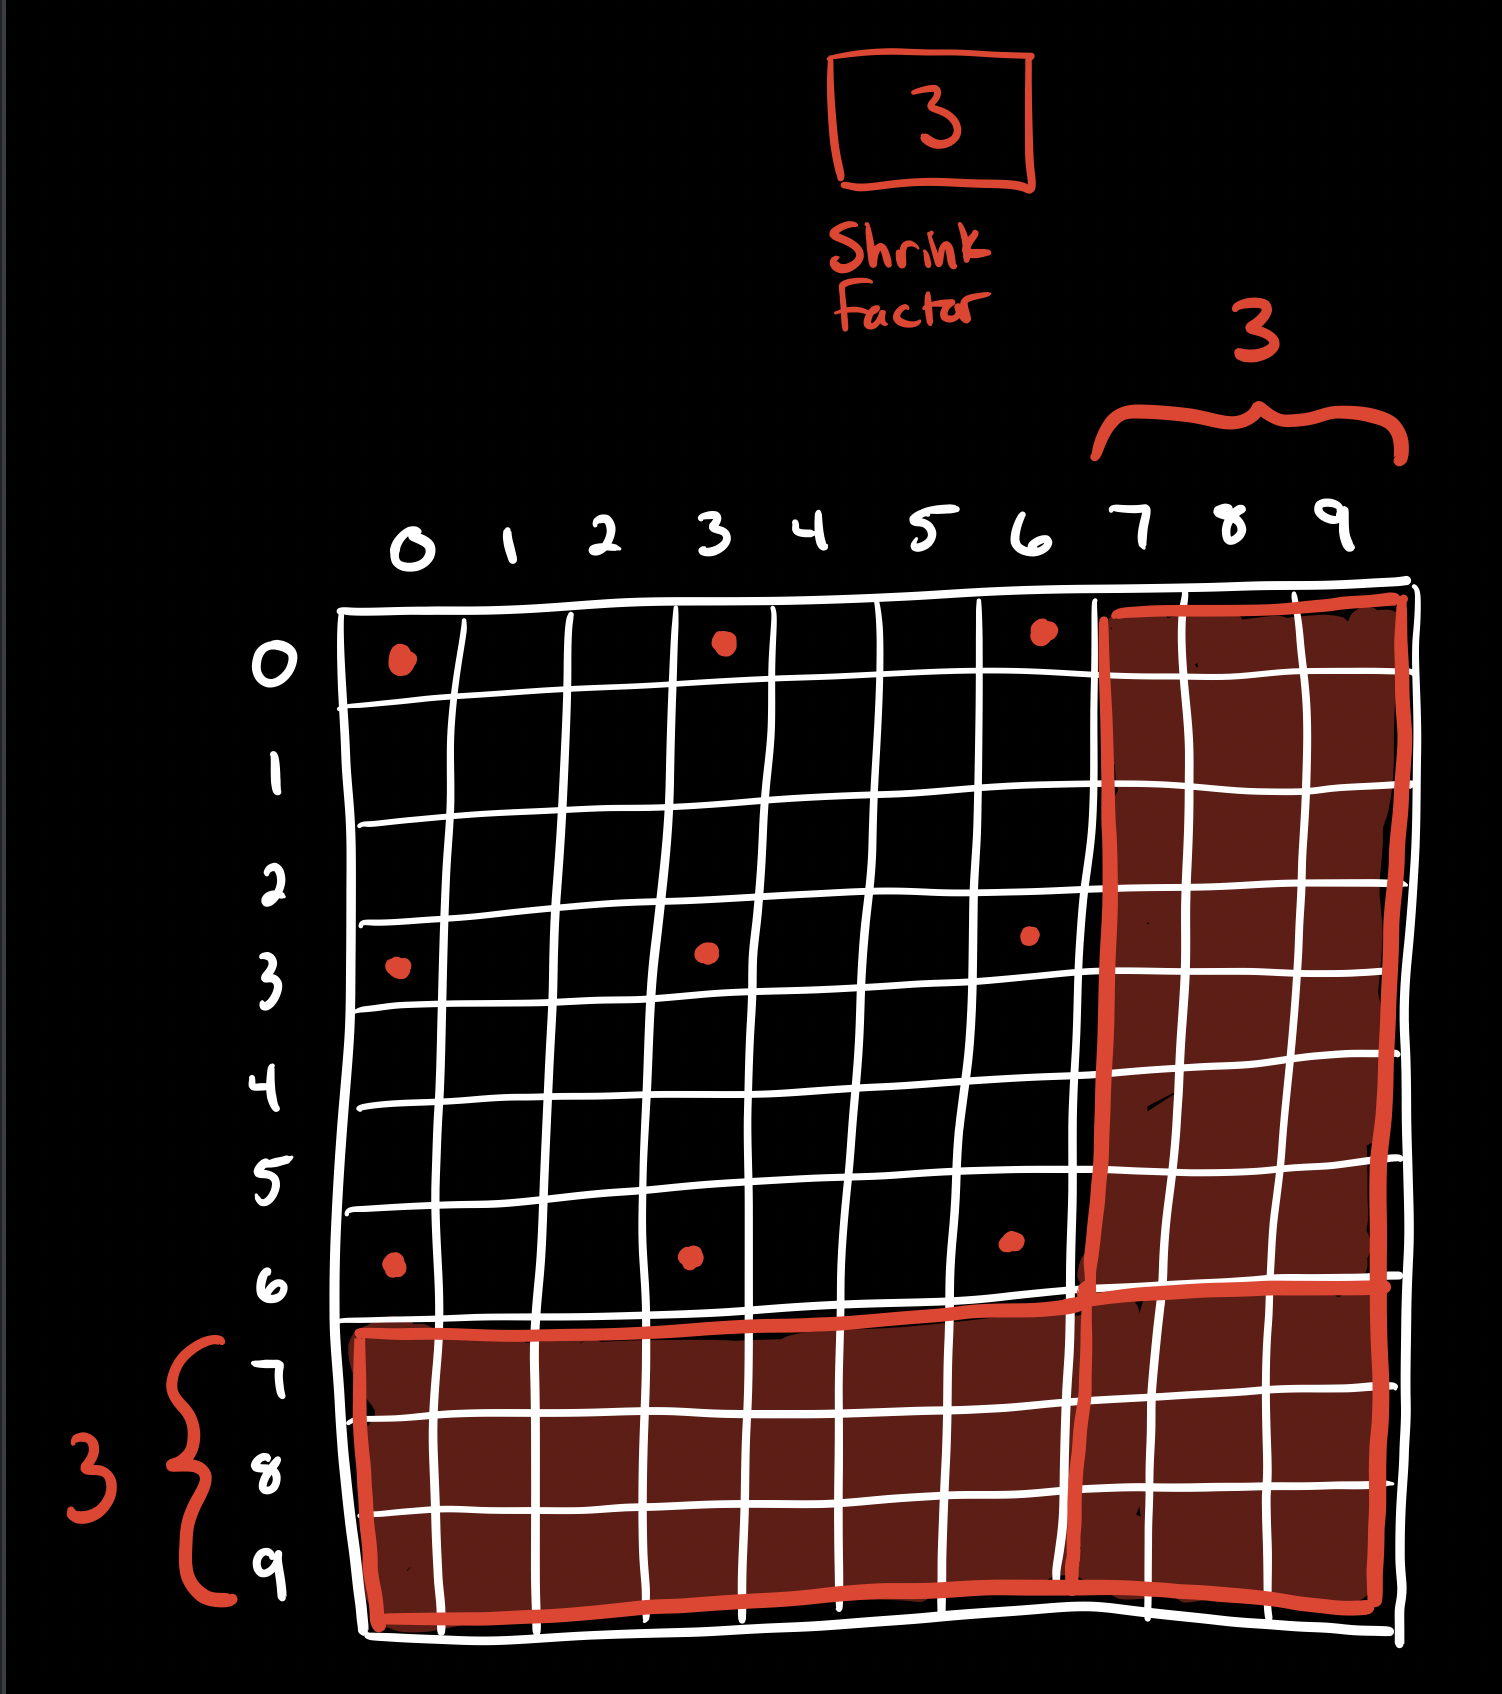 3
Shrink
Factor
3
0 1 2 3 4 5 6 7 8 9
0
1
2
3
4
5
6
7
3
8
9